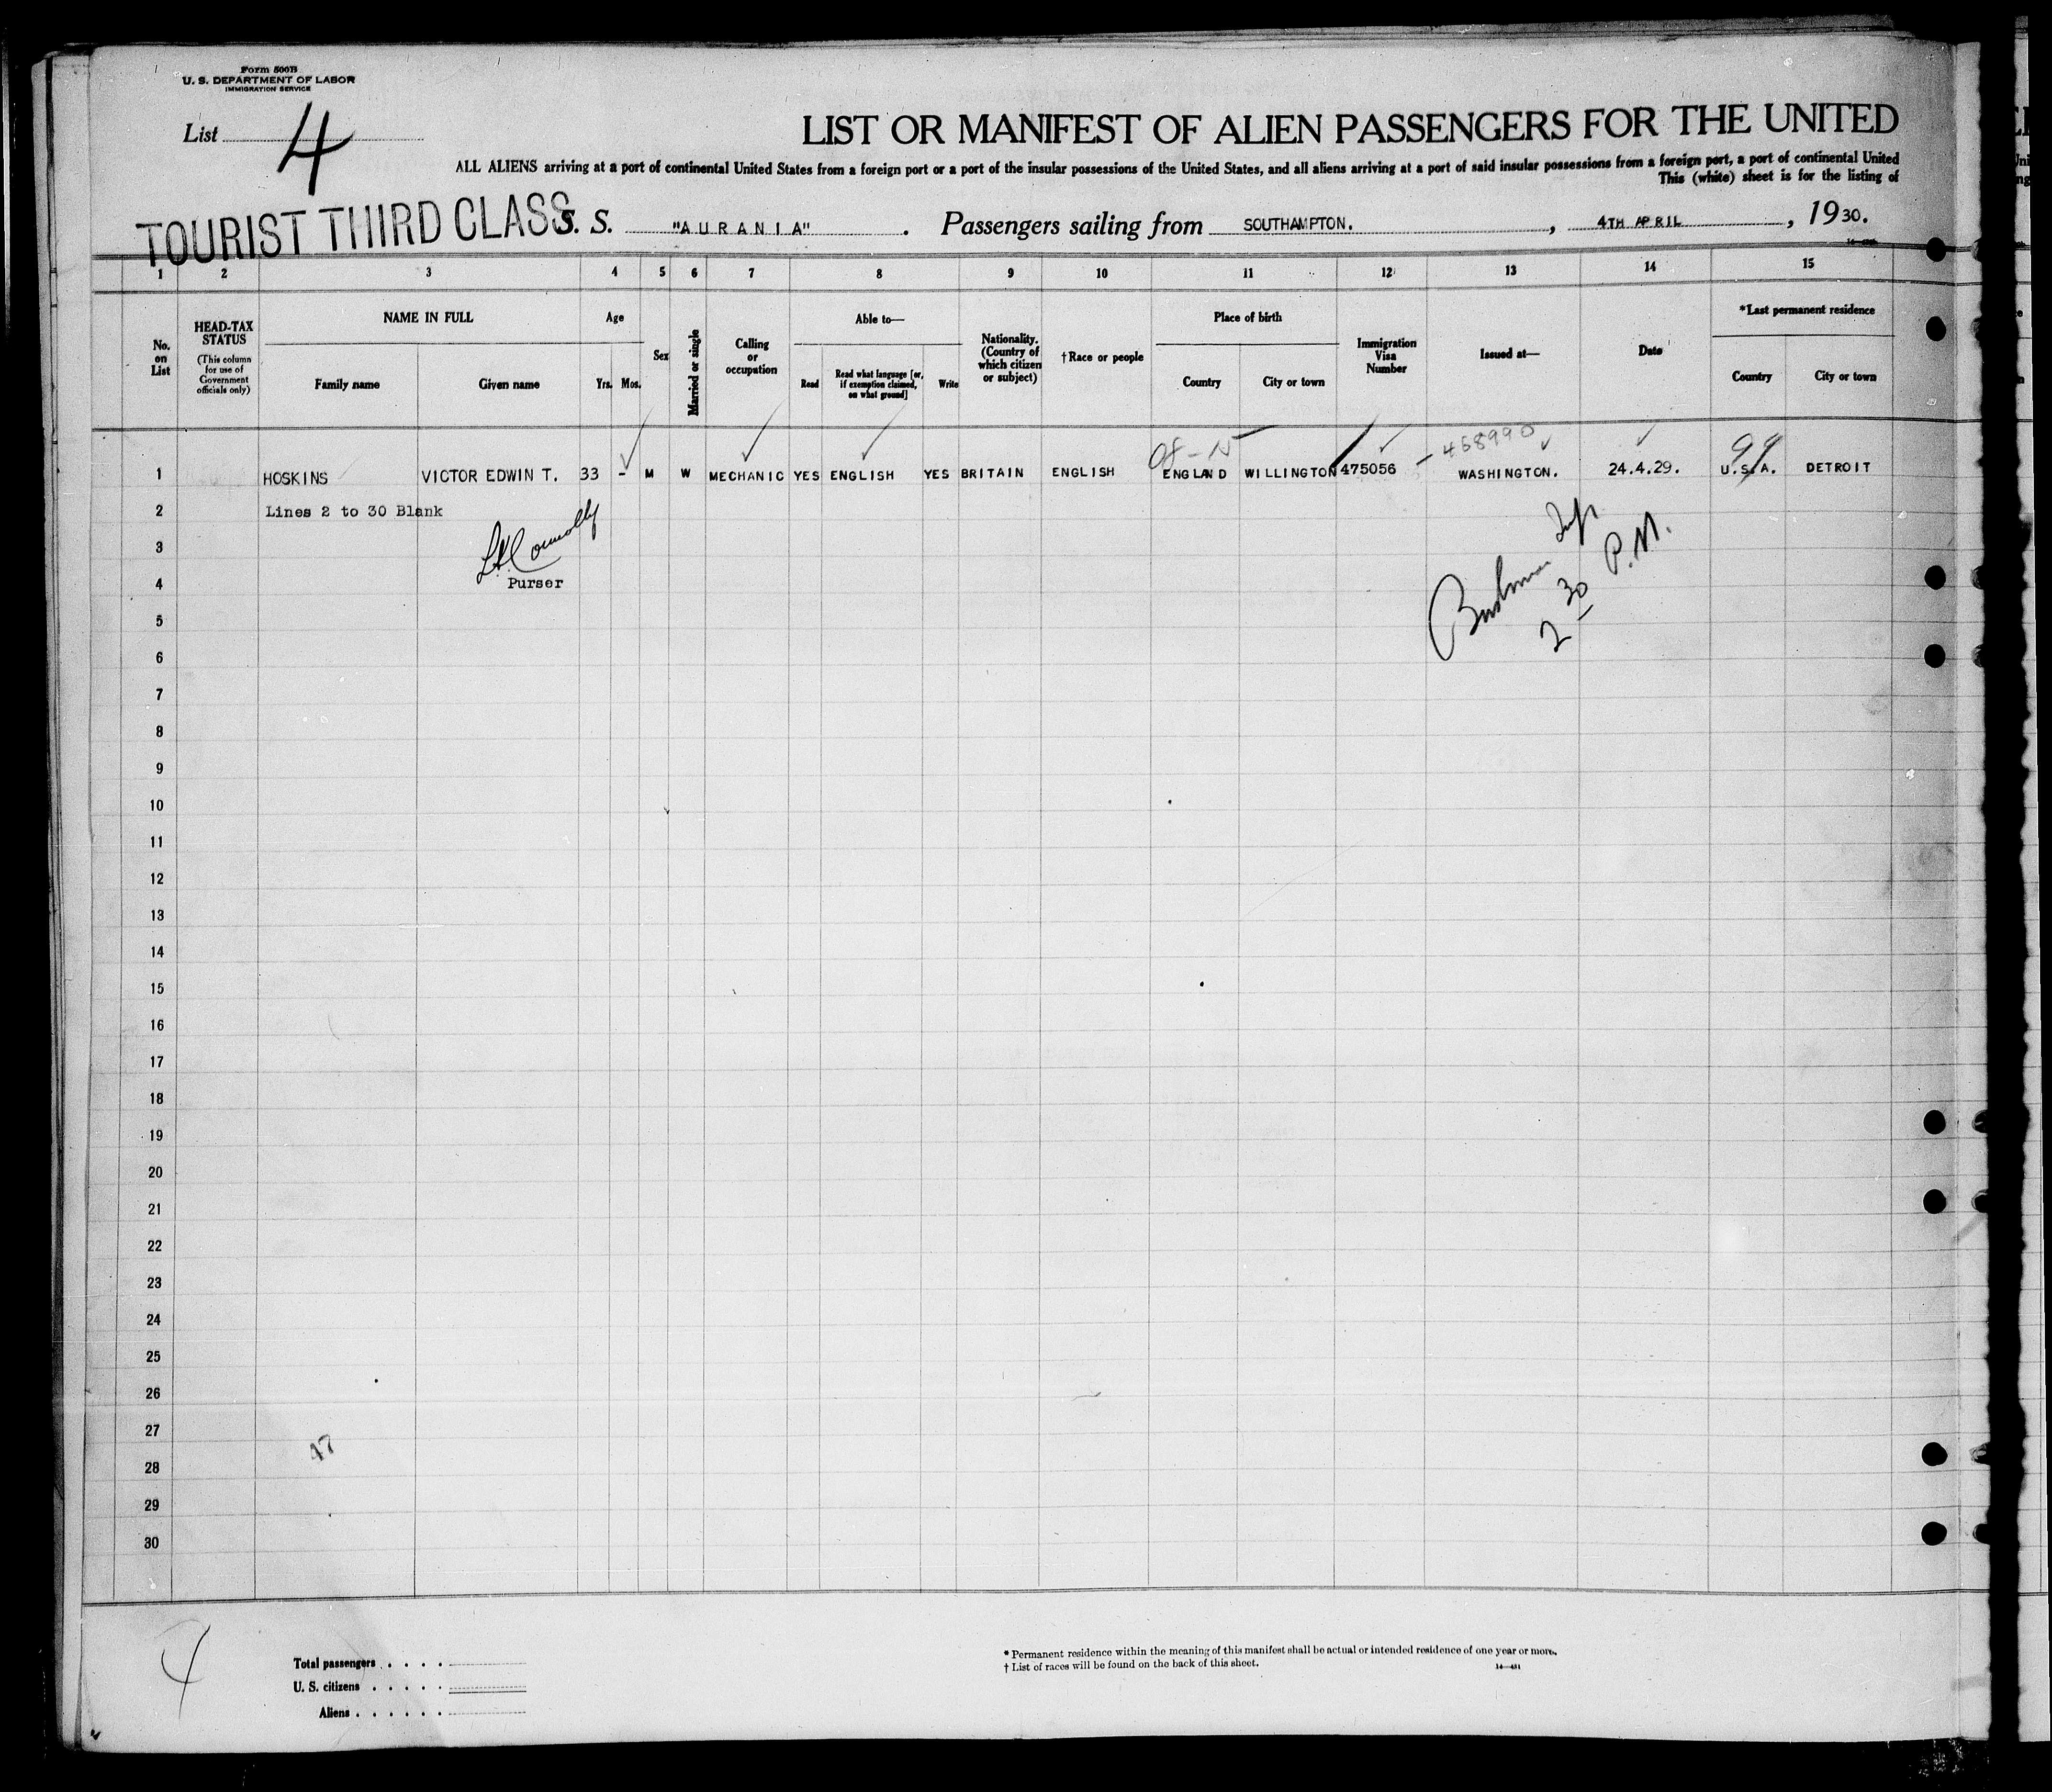 Form 500B
U. S. DEPARTMENT OF LABOR
IMMIGRATION SERVICE
List 4
LIST OR MANIFEST OF ALIEN PASSENGERS FOR THE UNITED
ALL ALIENS arriving at a port of continental United States from a foreign port or a port of the insular possessions of the United States, and all aliens arriving at a port of said insular possessions from a foreign port, a port of continental United
This (white) sheet is for the listing of
TOURIST THIRD CLASS
S. S. "AURANIA" . Passengers sailing from SOUTHAMPTON. , 4TH APRIL , 1930.
1 2 3 4 5 6 7 8 9 10 11 12 13 14 15
No. on List
HEAD-TAX STATUS
(This column for use of Government officials only)
NAME IN FULL
Family name Given name
Age
Yrs. Mos.
Sex
Married or single
Calling or occupation
Able to—
Read
Read what language [or, if exemption claimed, on what ground]
Write
Nationality. (Country of which citizen or subject)
†Race or people
Place of birth
Country City or town
Immigration Visa Number
Issued at—
Date
*Last permanent residence
Country City or town
458990
99
1 HOSKINS VICTOR EDWIN T. 33 - M W MECHANIC YES ENGLISH YES BRITAIN ENGLISH ENGLAND WILLINGTON 475056 WASHINGTON. 24.4.29. U.S.A. DETROIT
2 Lines 2 to 30 Blank
3
4 Purser
2 30 P.M.
5
6
7
8
9
10
11
12
13
14
15
16
17
18
19
20
21
22
23
24
25
26
27
47
28
29
30
4
Total passengers . . . .
U. S. citizens . . . . .
Aliens . . . . . .
* Permanent residence within the meaning of this manifest shall be actual or intended residence of one year or more.
† List of races will be found on the back of this sheet.